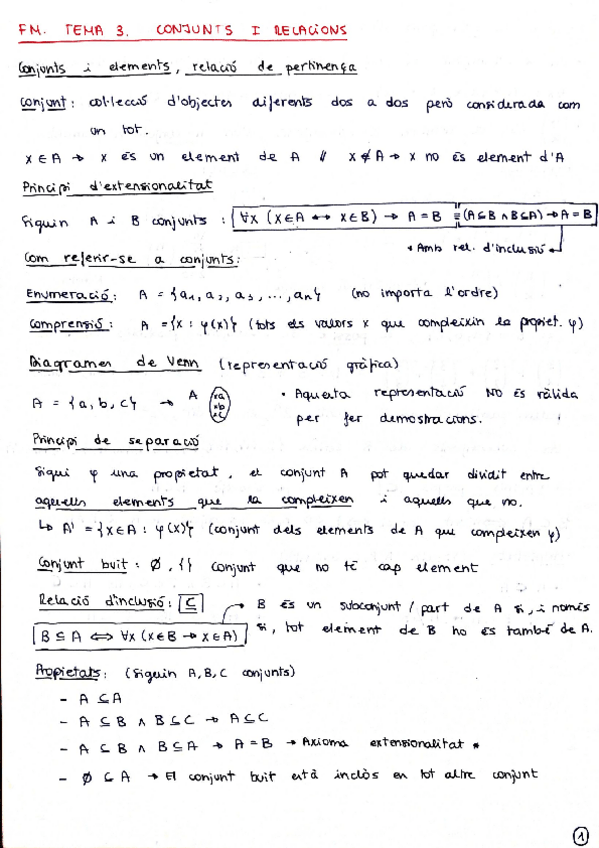 FM. TEMA 3. CONJUNTS I RELACIONS
Conjunts i elements, relació de pertinença
Conjunt: col·lecció d'objectes diferents dos a dos però considerada com
un tot.
x ∈ A → x és un element de A // x ∉ A → x no és element d'A
Principi d'extensionalitat
Siguin A i B conjunts : ∀x (x∈A ↔ x∈B) → A = B ≡ (A⊆B ∧ B⊆A) → A = B
* Amb rel. d'inclusió
Com referir-se a conjunts:
Enumeració: A = {a₁, a₂, a₃, ..., aₙ} (no importa l'ordre)
Comprensió: A = {x : φ(x)} (tots els valors x que compleixin la propiet. φ)
Diagrames de Venn (representació gràfica)
A = {a, b, c} → A ·a ·b ·c • Aquesta representació NO és vàlida
per fer demostracions.
Principi de separació
Sigui φ una propietat, el conjunt A pot quedar dividit entre
aquells elements que la compleixen i aquells que no.
↳ A' = {x∈A : φ(x)} (conjunt dels elements de A que compleixen φ)
Conjunt buit: ∅, {} conjunt que no té cap element
Relació d'inclusió: ⊆ → B és un subconjunt / part de A si, i només
B ⊆ A ⟺ ∀x (x∈B → x∈A) si, tot element de B ho és també de A.
Propietats: (Siguin A, B, C conjunts)
- A ⊆ A
- A ⊆ B ∧ B ⊆ C → A ⊆ C
- A ⊆ B ∧ B ⊆ A → A = B → Axioma extensionalitat *
- ∅ ⊆ A → El conjunt buit està inclòs en tot altre conjunt
1